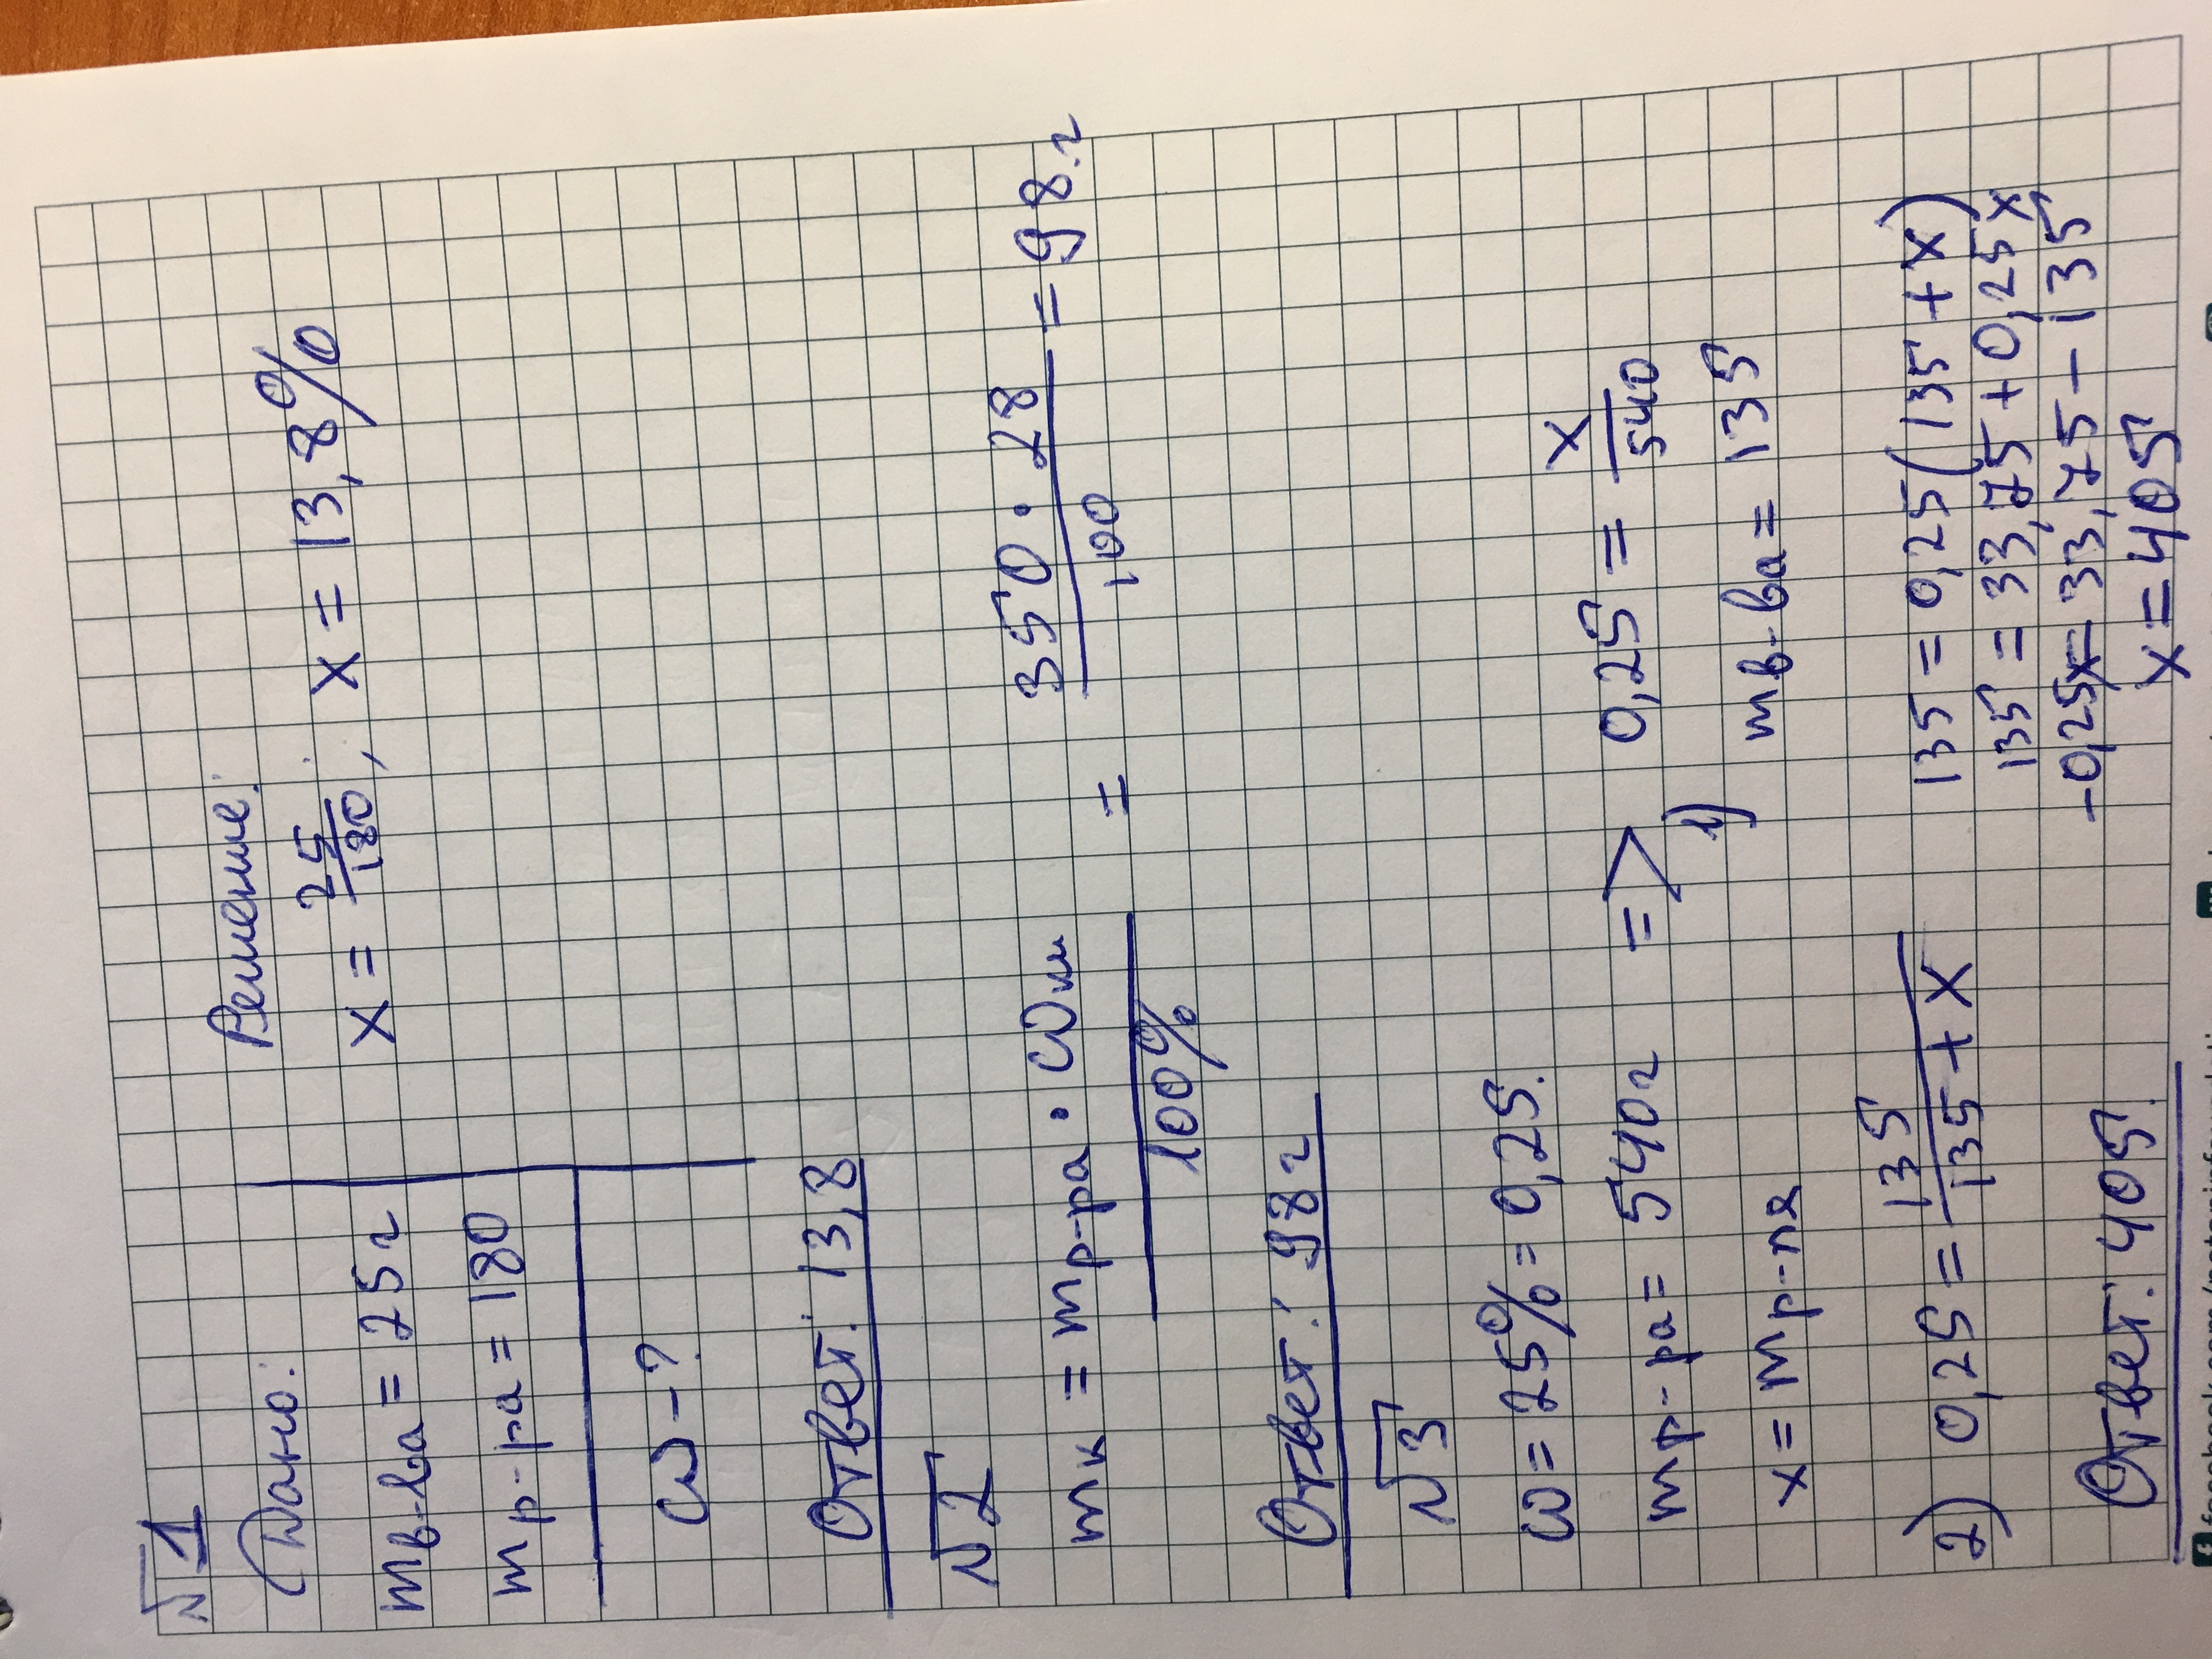 №1
Дано:
mв-ва = 25 г
mр-ра = 180
ω - ?
Решение:
x = 25/180, x = 13,8%
Ответ: 13,8
№2
mк = mр-ра · ωк / 100% = 350 · 28 / 100 = 98 г
Ответ: 98 г
№3
ω = 25% = 0,25.
mр-ра = 540 г => 0,25 = x/540
x = mр-ля 1) mв-ва = 135
2) 0,25 = 135/135 + x
135 = 0,25(135 + x)
135 = 33,75 + 0,25x
-0,25x = 33,75 - 135
x = 405
Ответ: 405.